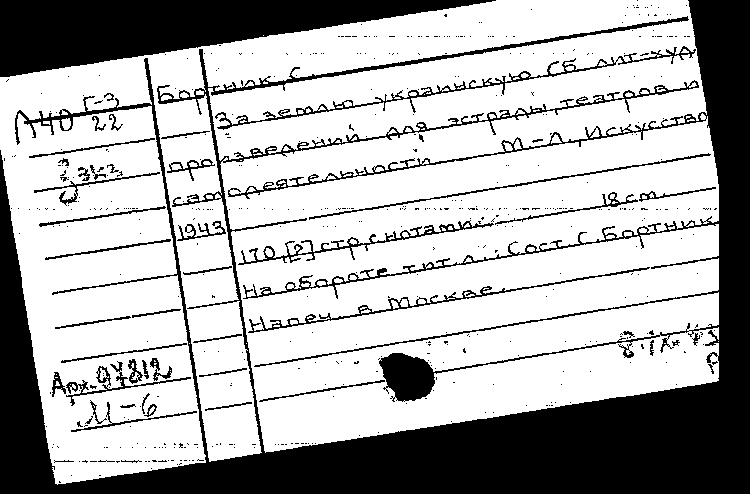 Л40 Г-3
22
3 экз
Бортник, С.
За землю украинскую. Сб лит-худ
произведений для эстрады, театров и
самодеятельности М.-Л., Искусство
1943
170, [2] стр, с нотами. 18 см.
На обороте тит. л.: Сост. С. Бортник
Напеч. в Москве.
Арх. 97812
М-6
8.IX.43